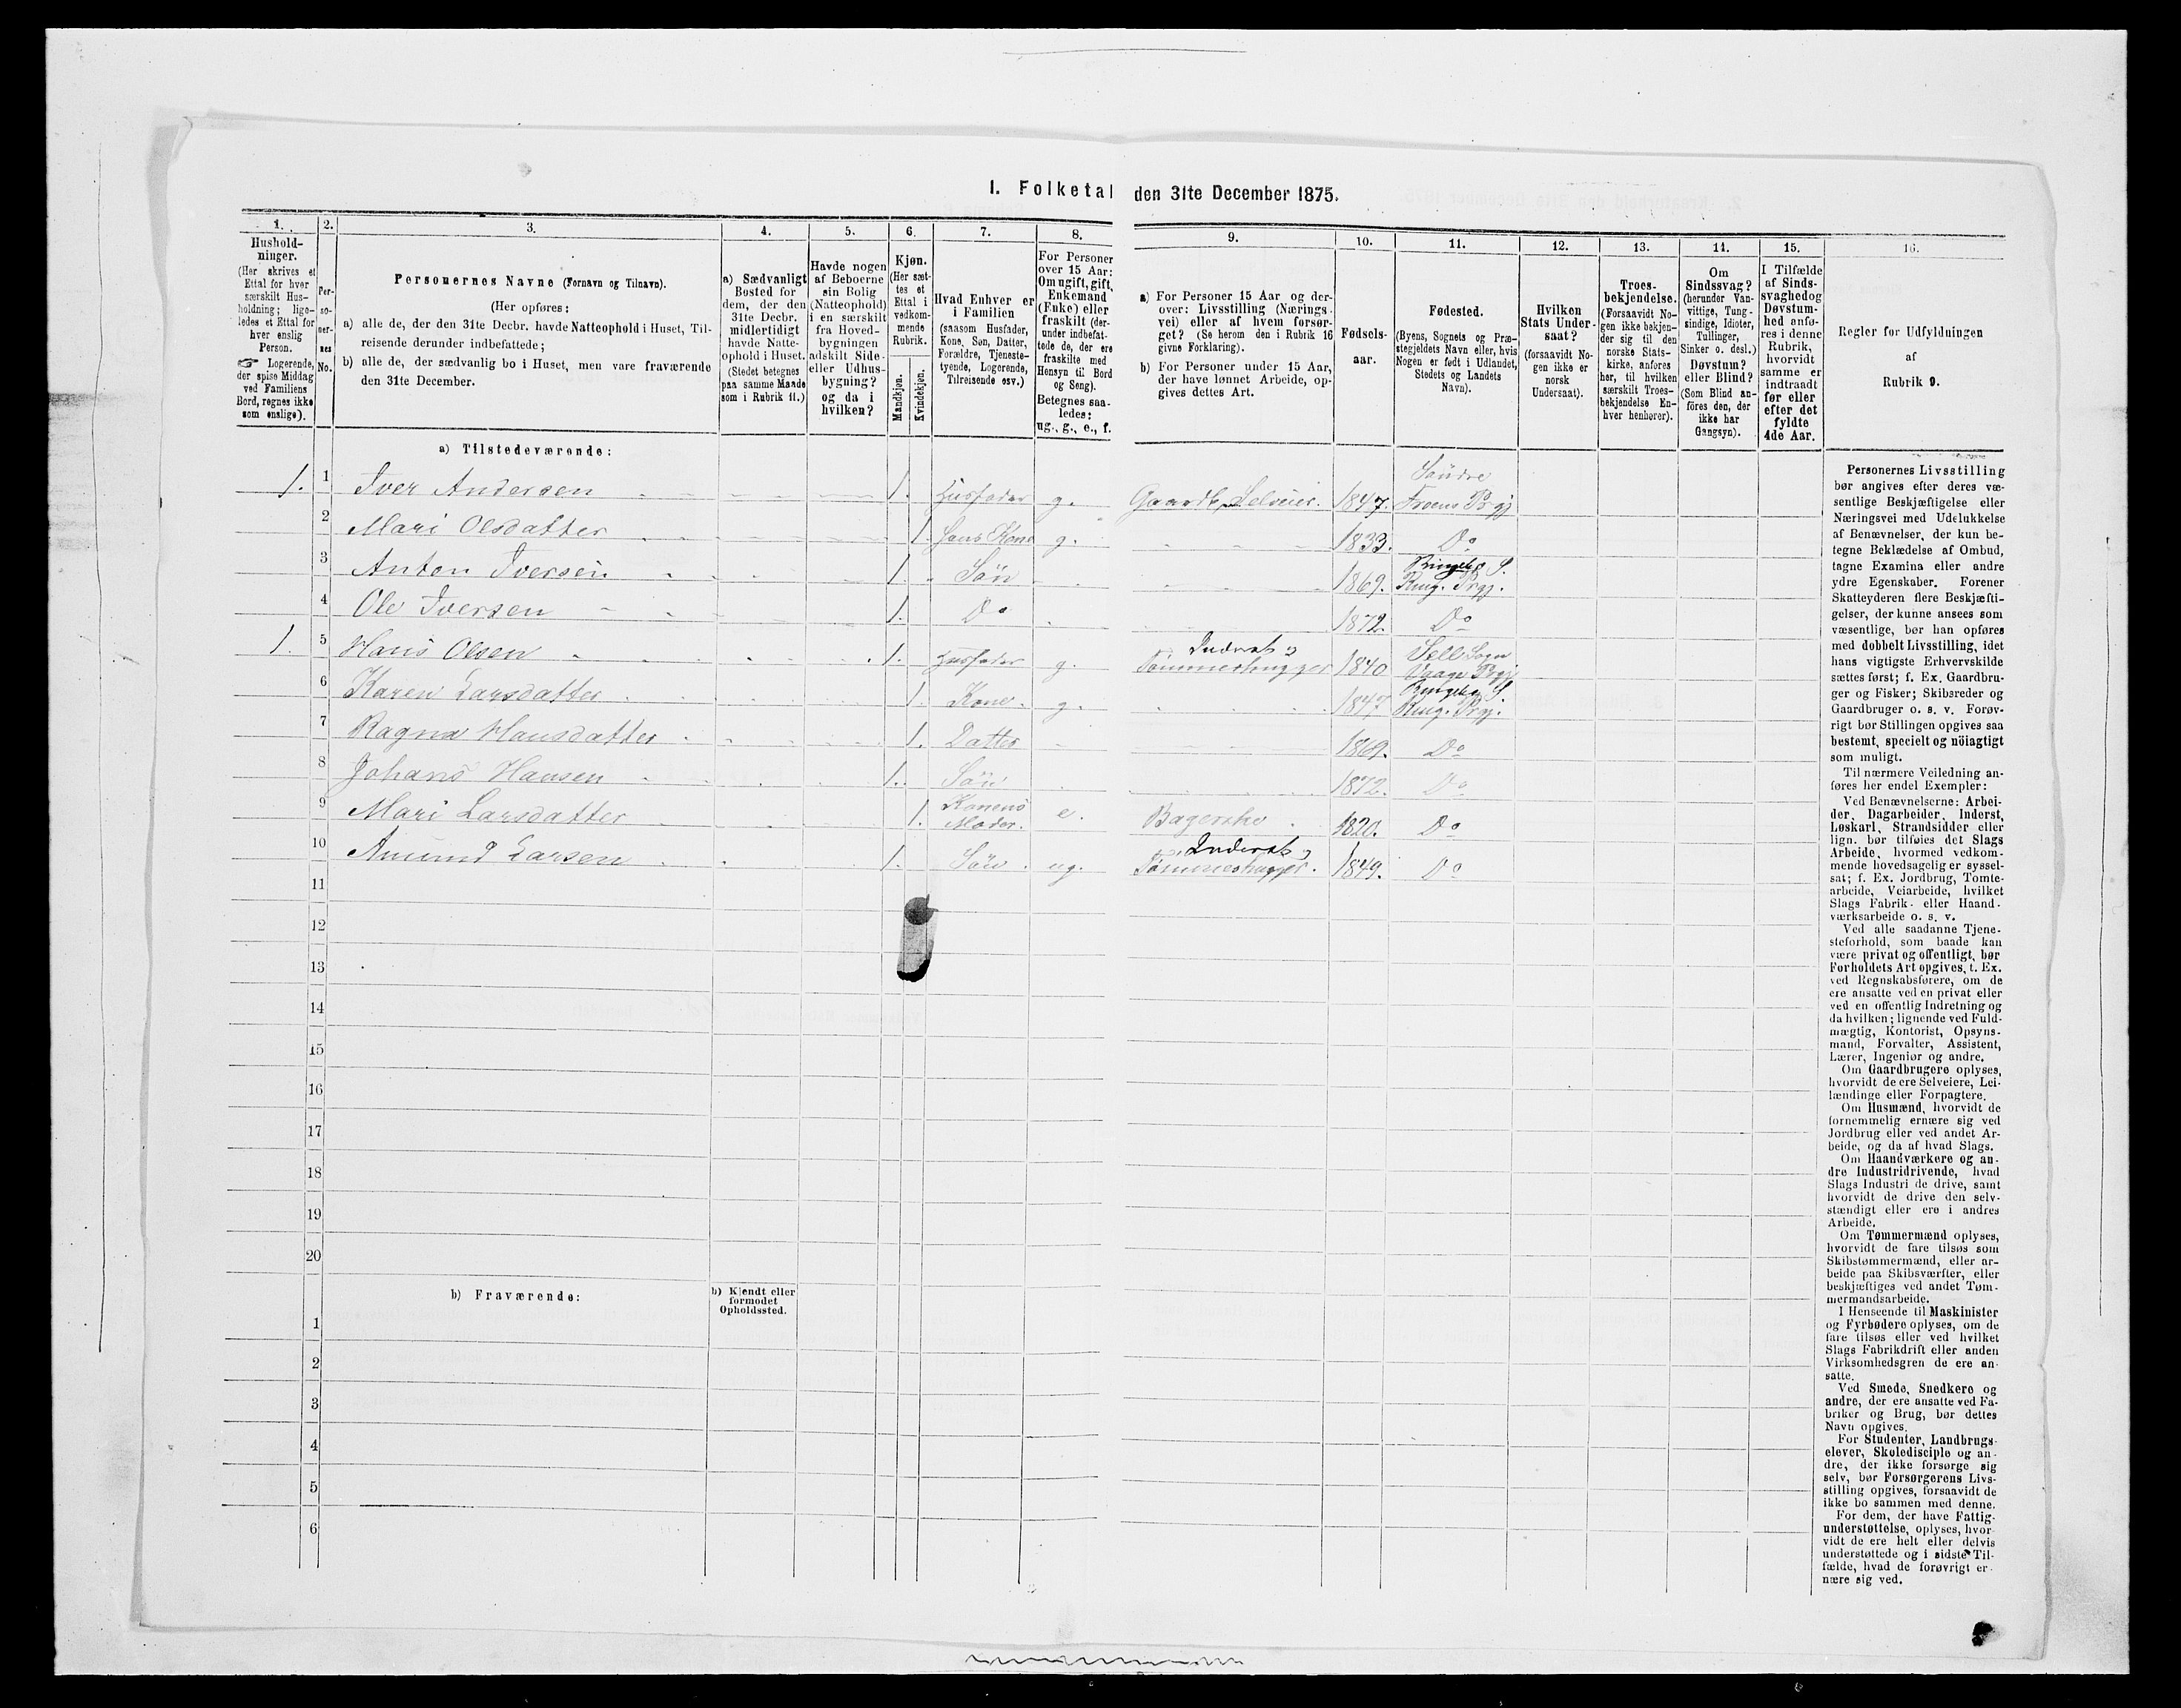 I. Folketal den 31te December 1875.
1.
Hushold-
ninger.
(Her skrives et
Ettal for hver
særskilt Hus-
holdning; lige-
ledes et Ettal for
hver enslig
Person.
☞ Logerende,
der spise Middag
ved Familiens
Bord, regnes ikke
som enslige).
2.
Per-
so-
ner-
nes
No.
3.
Personernes Navne (Fornavn og Tilnavn).
(Her opføres:
a) alle de, der den 31te Decbr. havde Natteophold i Huset, Til-
reisende derunder indbefattede;
b) alle de, der sædvanlig bo i Huset, men vare fraværende
den 31te December.
4.
a) Sædvanligt
Bosted for
dem, der den
31te Decbr.
midlertidigt
havde Natte-
ophold i Huset.
(Stedet betegnes
paa samme Maade
som i Rubrik 11.)
5.
Havde nogen
af Beboerne
sin Bolig
(Natteophold)
i en særskilt
fra Hoved-
bygningen
adskilt Side-
eller Udhus-
bygning?
og da i
hvilken?
6.
Kjøn.
(Her sæt-
tes et
Ettal i
vedkom-
mende
Rubrik.
Mandkjøn.
Kvindekjøn.
7.
Hvad Enhver er
i Familien
(saasom Husfader,
Kone, Søn, Datter,
Forældre, Tjeneste-
tyende, Logerende,
Tilreisende osv.)
8.
For Personer
over 15 Aar:
Om ugift, gift,
Enkemand
(Enke) eller
fraskilt (der-
under indbefat-
tede de, der ere
fraskilte med
Hensyn til Bord
og Seng).
Betegnes saa-
ledes:
ug., g., e., f.
9.
a) For Personer 15 Aar og der-
over: Livsstilling (Nærings-
vei) eller af hvem forsør-
get? (Se herom den i Rubrik 16
givne Forklaring).
b) For Personer under 15 Aar,
der have lønnet Arbeide, op-
gives dettes Art.
10.
Fødsels-
aar.
11.
Fødested.
(Byens, Sognets og Præ-
stegjeldets Navn eller, hvis
Nogen er født i Udlandet,
Stedets og Landets
Navn).
12.
Hvilken
Stats Under-
saat?
(forsaavidt No-
gen ikke er
norsk
Undersaat).
13.
Troes-
bekjendelse.
(Forsaavidt No-
gen ikke bekjen-
der sig til den
norske Stats-
kirke, anføres
her, til hvilken
særskilt Troes-
bekjendelse En-
hver henhører).
14.
Om
Sindssvag?
(herunder Van-
vittige, Tung-
sindige, Idioter,
Tullinger,
Sinker o. desl.)
Døvstum?
eller Blind?
(Som Blind an-
föres den, der
ikke har
Gangsyn).
15.
I Tilfælde
af Sinds-
svaghed og
Døvstum-
hed anfø-
res i denne
Rubrik,
hvorvidt
samme er
indtraadt
før eller
efter det
fyldte
4de Aar.
16.
Regler for Udfyldningen
af
Rubrik 9.
a) Tilstedeværende:
1. 1 Iver Andersen 1. Husfader g. Gaardb. Selveier. 1847. Söndre
Froens Prgj
2 Mari Olsdatter 1. Hans Kone g. 1833. Do
3 Anton Iversen 1. Sön 1869. Ringebo S.
Ring. Prgj.
4 Ole Iversen 1. Do 1872. Do
1. 5 Hans Olsen 1. Husfader g. Inderst og
Tömmerhugger 1840 Sell Sogn
Vaage Prgj
6 Karen Larsdatter 1. Kone g. 1847 Ringebo S.
Ring. Prgj.
7 Ragna Hansdatter 1. Datter 1869. Do
8 Johans Hansen 1. Sön 1872. Do
9 Mari Larsdatter 1. Konens
Moder. e. Bagerske 1820. Do
10 Amund Larsen 1. Sön ug. Inderst og
Tömmerhugger. 1849. Do
11
12
13
14
15
16
17
18
19
20
b) Fraværende:
b) Kjendt eller
formodet
Opholdssted.
1
2
3
4
5
6
Personernes Livsstilling
bør angives efter deres væ-
sentlige Beskjæftigelse eller
Næringsvei med Udelukkelse
af Benævnelser, der kun be-
tegne Beklædelse af Ombud,
tagne Examina eller andre
ydre Egenskaber. Forener
Skatteyderen flere Beskjæfti-
gelser, der kunne ansees som
væsentlige, bør han opføres
med dobbelt Livsstilling, idet
hans vigtigste Erhvervskilde
sættes først; f. Ex. Gaardbru-
ger og Fisker; Skibsreder og
Gaardbruger o. s. v. Forøv-
rigt bør Stillingen opgives saa
bestemt, specielt og nöiagtigt
som muligt.
Til nærmere Veiledning an-
føres her endel Exempler:
Ved Benævnelserne: Arbei-
der, Dagarbeider, Inderst,
Løskarl, Strandsidder eller
lign. bør tilføies det Slags
Arbeide, hvormed vedkom-
mende hovedsagelig er syssel-
sat; f. Ex. Jordbrug, Tomte-
arbeide, Veiarbeide, hvilket
Slags Fabrik- eller Haand-
værksarbeide o. s. v.
Ved alle saadanne Tjene-
steforhold, som baade kan
være privat og offentligt, bør
Forholdets Art opgives, t. Ex.
ved Regnskabsførere, om de
ere ansatte ved en privat eller
ved en offentlig Indretning og
da hvilken; lignende ved Fuld-
mægtig, Kontorist, Opsyns-
mand, Forvalter, Assistent,
Lærer, Ingeniør og andre.
Om Gaardbrugere oplyses,
hvorvidt de ere Selveiere, Lei-
lændinge eller Forpagtere.
Om Husmænd, hvorvidt de
fornemmelig ernære sig ved
Jordbrug eller ved andet Ar-
beide, og da af hvad Slags.
Om Haandværkere og an-
dre Industridrivende, hvad
Slags Industri de drive, samt
hvorvidt de drive den selv-
stændigt eller ere i andres
Arbeide.
Om Tømmermænd oplyses,
hvorvidt de fare tilsøs som
Skibstømmermænd, eller ar-
beide paa Skibsværfter, eller
beskjæftiges ved andet Tøm-
mermandsarbeide.
I Henseende til Maskinister
og Fyrbødere oplyses, om de
fare tilsøs eller ved hvilket
Slags Fabrikdrift eller anden
Virksomhedsgren de ere an-
satte.
Ved Smede, Snedkere og
andre, der ere ansatte ved Fa-
briker og Brug, bør dettes
Navn opgives.
For Studenter, Landbrugs-
elever, Skoledisciple og an-
dre, der ikke forsørge sig
selv, bør Forsørgerens Livs-
stilling opgives, forsaavidt de
ikke bo sammen med denne.
For dem, der have Fattig-
understøttelse, oplyses, hvor-
vidt de ere helt eller delvis
understøttede og i sidste Til-
fælde, hvad de forøvrigt er-
nære sig ved.